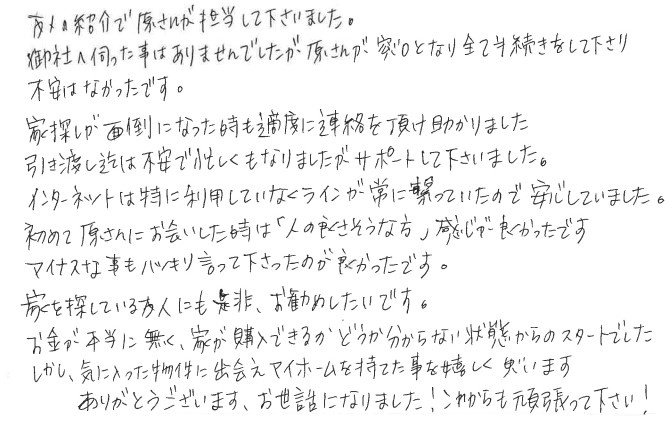 友人の紹介で原さんが担当して下さいました。
御社へ伺った事はありませんでしたが原さんが窓口となり全て手続きをして下さり
不安はなかったです。
家探しが面倒になった時も適度に連絡を頂け助かりました
引き渡し迄は不安で忙しくもなりましたがサポートして下さいました。
インターネットは特に利用していなくラインが常に繋っていたので安心していました。
初めて原さんにお会いした時は「人の良さそうな方」感じが良かったです
マイナスな事もハッキリ言って下さったのが良かったです。
家を探している友人にも是非、お勧めしたいです。
お金が本当に無く、家が購入できるかどうか分からない状態からのスタートでした
しかし、気に入った物件に出会えマイホームを持てた事を嬉しく思います
ありがとうございます、お世話になりました！これからも頑張って下さい！